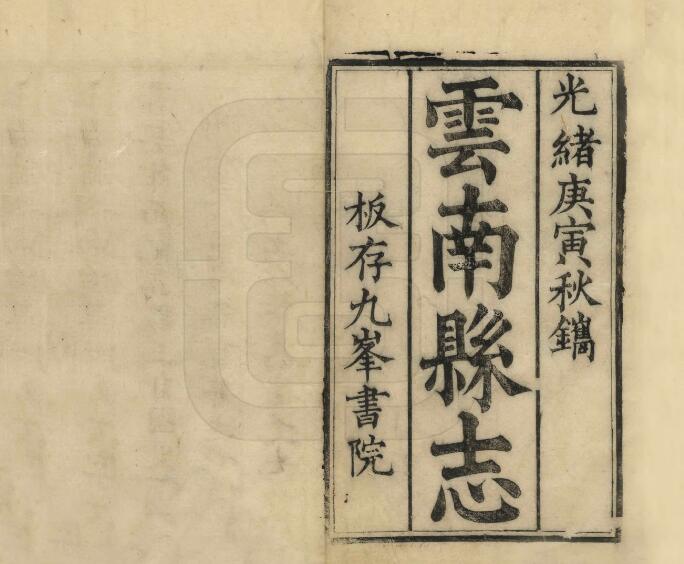 光緒庚寅秋鐫
雲南縣志
板存九峯書院